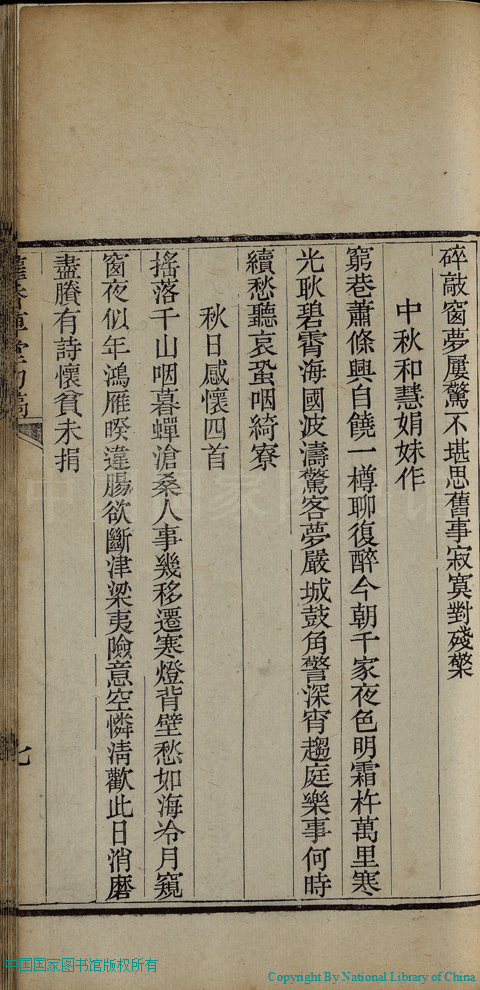 碎敲窗夢屢驚不堪思舊事寂寞對殘檠
中秋和慧娟妹作
窮巷蕭條興自饒一樽聊復醉今朝千家夜色明霜杵萬里寒
光耿碧霄海國波濤驚客夢嚴城鼓角警深宵趨庭樂事何時
續愁聽哀蛩咽綺寮
秋日感懷四首
搖落千山咽暮蟬滄桑人事幾移遷寒燈背壁愁如海冷月窺
窗夜似年鴻雁暌違腸欲斷津梁夷險意空憐清歡此日消磨
盡賸有詩懷貧未捐
七
中国国家图书馆版权所有
Copyright By National Library of China